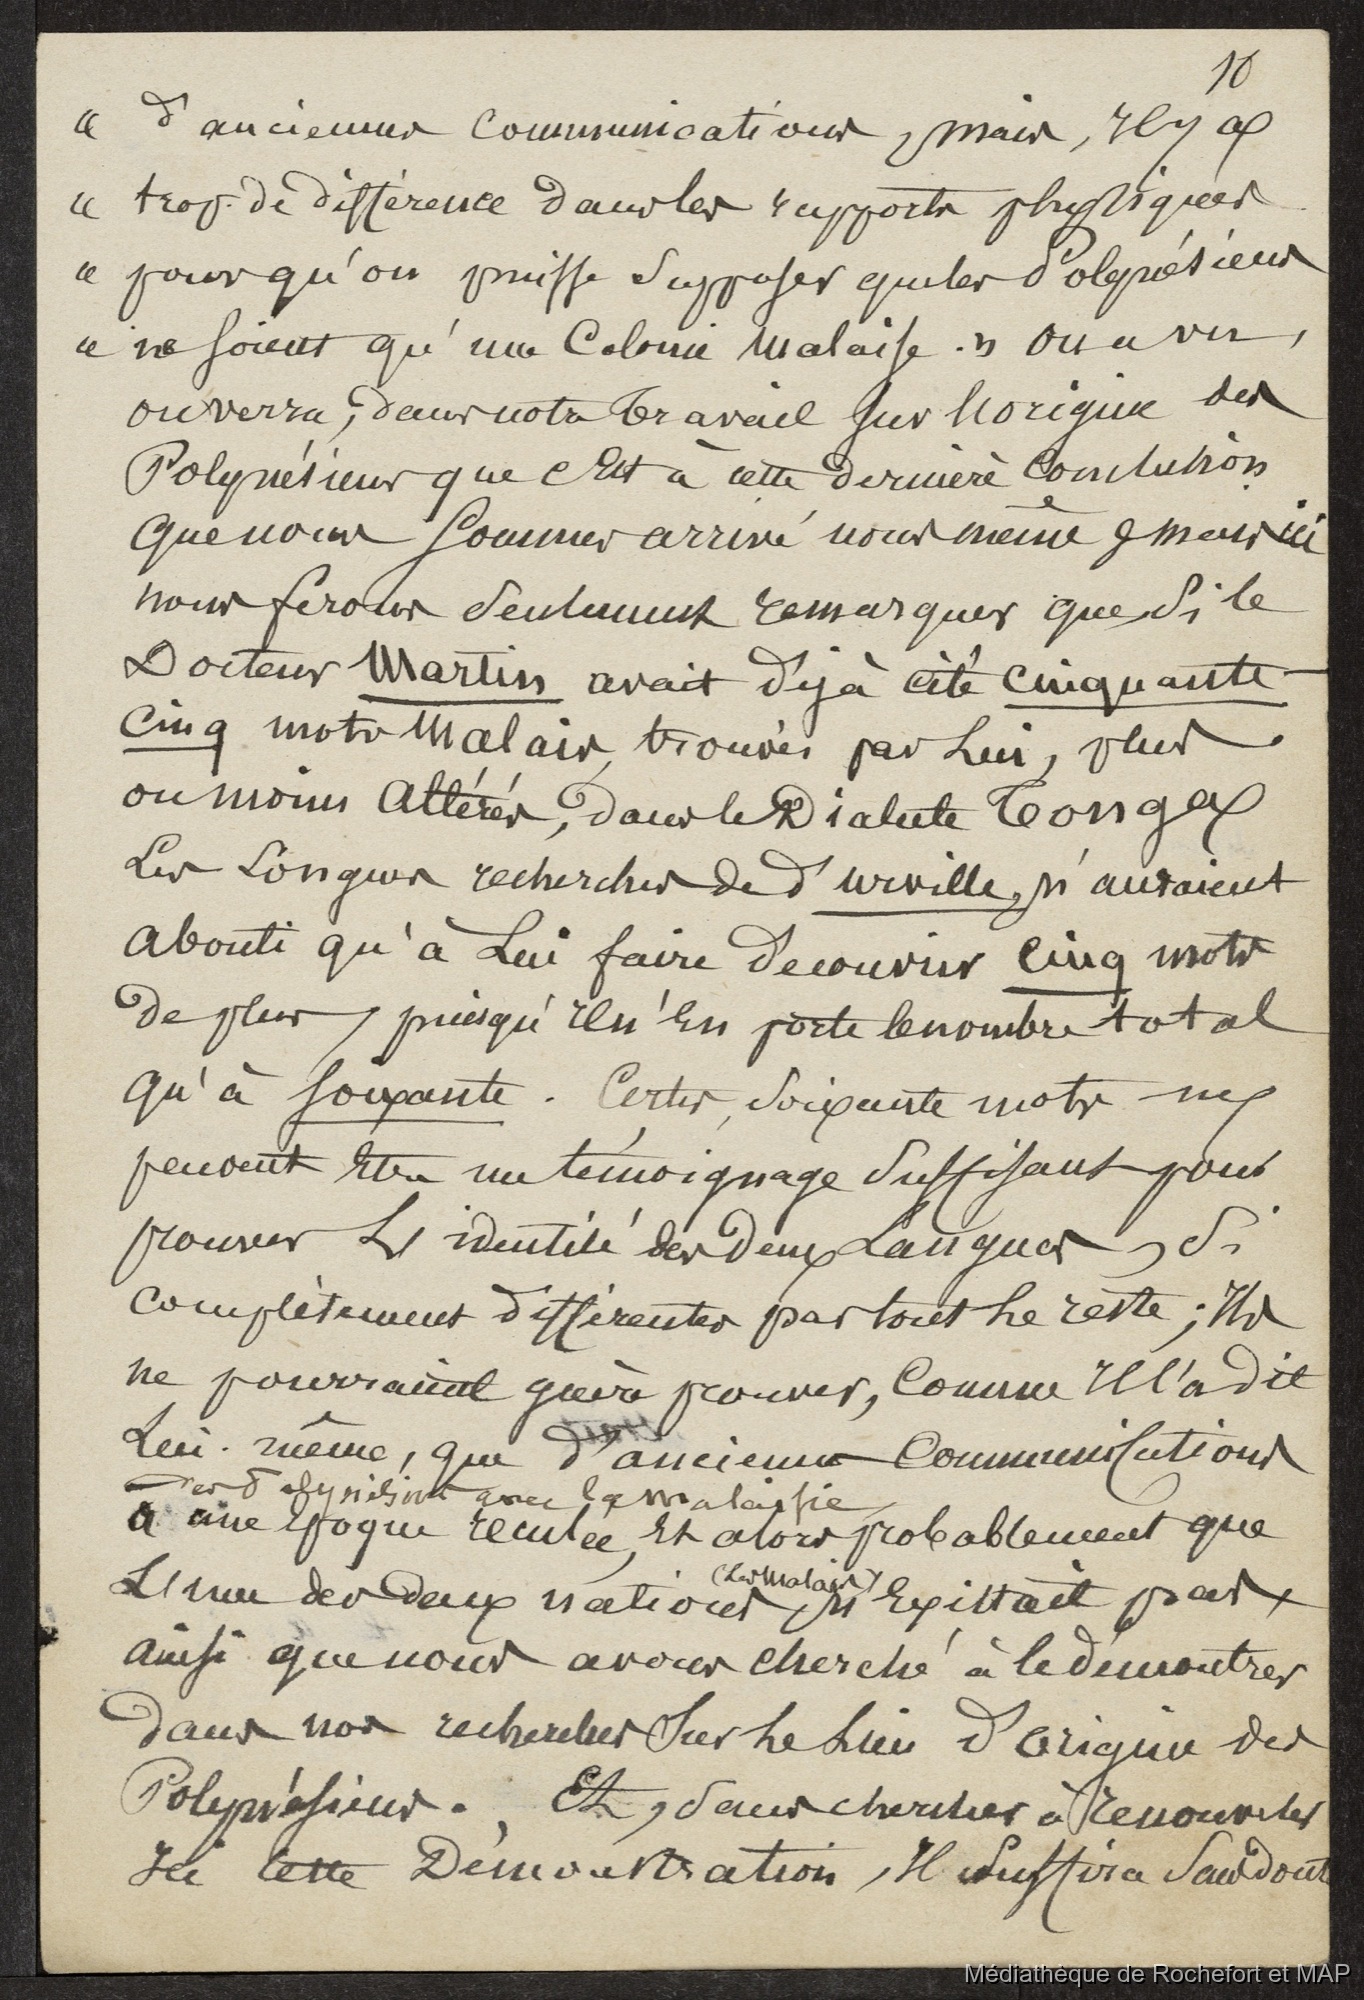 10
" d'anciennes communications, mais, il y a
" trop de différence dans les rapports physiques
" pour qu'on puisse supposer que les Polynésiens
" ne soient qu'une Colonie Malaise. " On a vu,
ou verra, dans notre travail sur l'origine des
Polynésiens que c'est à cette dernière conclusion
que nous sommes arrivé nous même ; mais ici
nous ferons seulement remarquer que, si le
Docteur Martin avait déjà cité cinquante
cinq mots Malais, trouvés par lui, plus
ou moins altérés, dans le Dialecte Tonga
les longues recherches de d'urville, n'auraient
abouti qu'à lui faire découvrir cinq mots
de plus, puisqu'il n'en porte le nombre total
qu'à soixante. Certes, soixante mots ne
peuvent être un témoignage suffisant pour
prouver l'identité des deux Langues, si
complètement différentes par tout le reste ; Ils
ne pourraient guère prouver, comme il l'a dit
lui-même, que d'anciennes communications
des Polynésiens avec la malaisie
à une époque reculée, et alors probablement que
l'une des deux nations (les Malais) n'existait pas,
ainsi que nous avons cherché à le démontrer
dans nos recherches sur le lieu d'origine des
Polynésiens. Et, sans chercher à renouveler
ici cette Démonstration, il suffira sans dout
Médiathèque de Rochefort et MAP